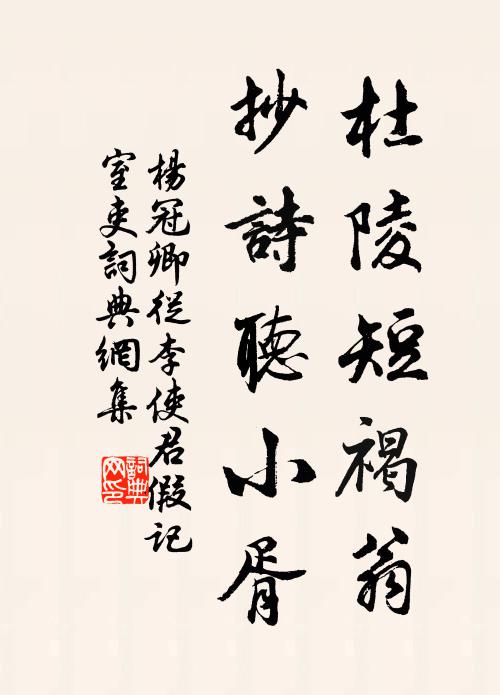 杜陵短褐翁
抄詩聽小胥
楊冠卿從李使君假記
室吏詞典網集
詞典
网印